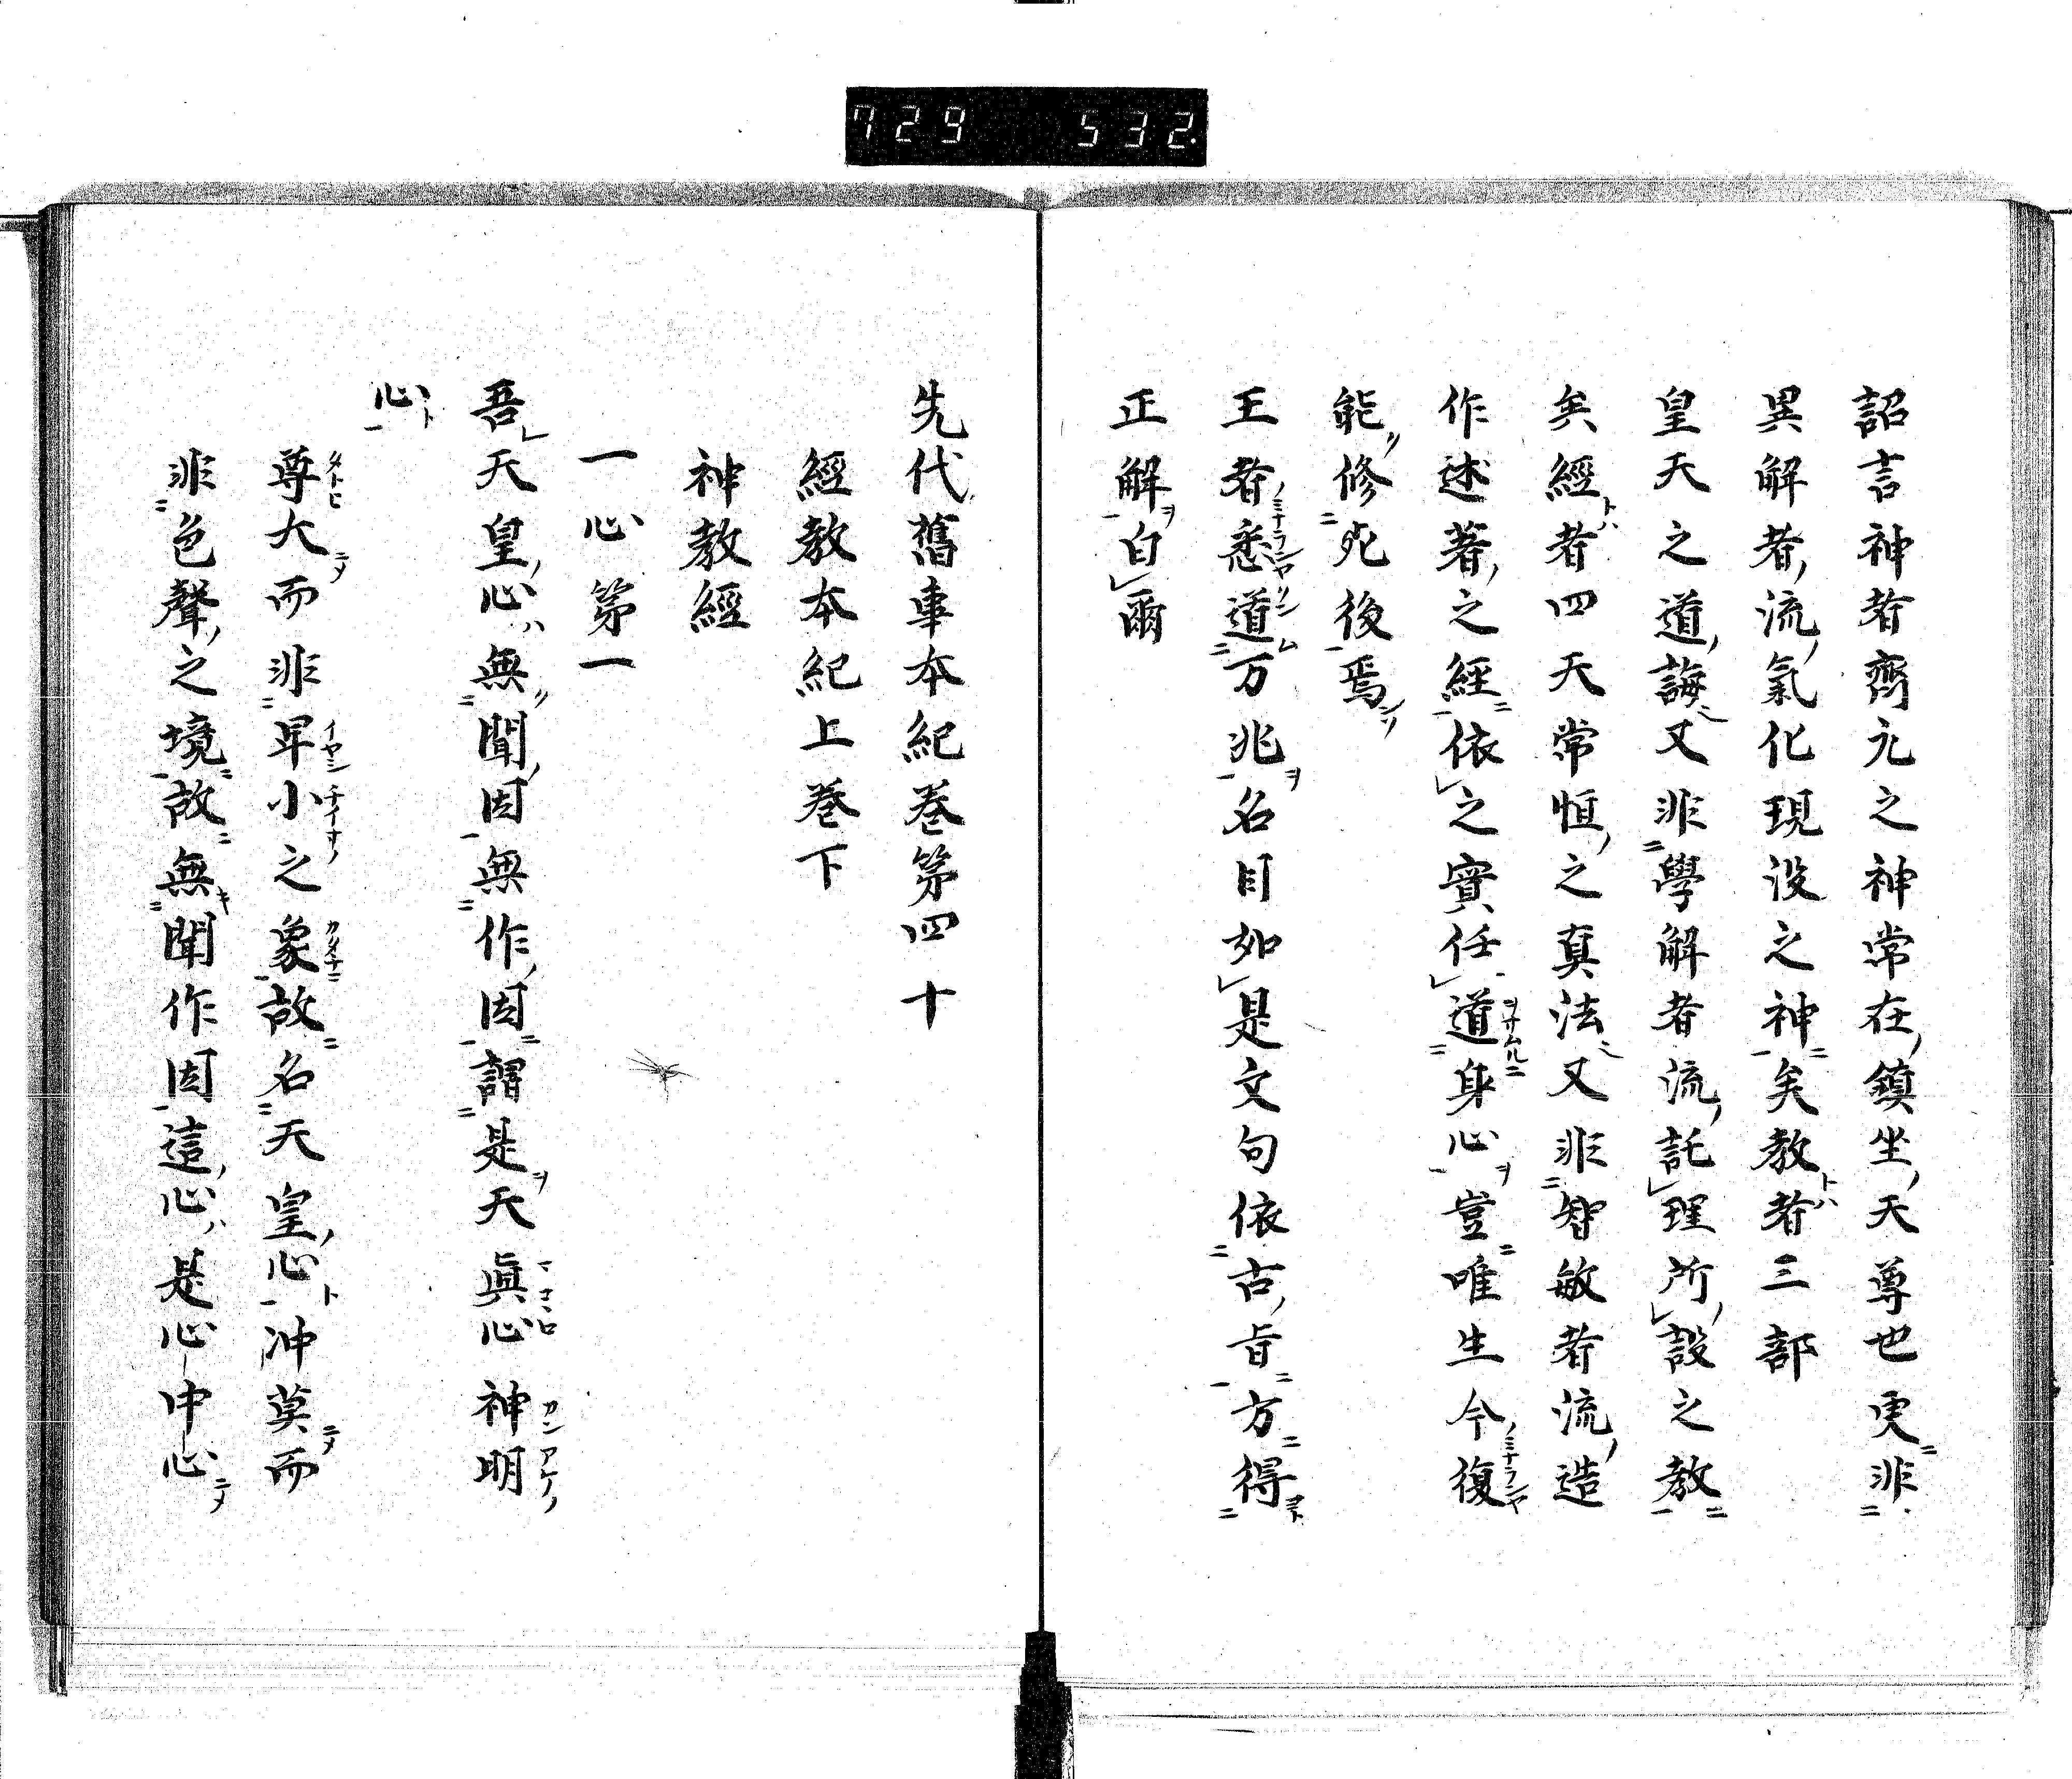 729 532.
詔言神者齊元之神常在鎮坐天尊也更非
異解者流氣化現没之神矣教者三部
皇天之道誨又非學解者流託理所設之教
矣經者四天常恒之真法又非智敏者流造
作述著之經依之實任道身心豈唯生今復
能修死後焉
王者悉道万兆名目如是文句依古旨方得
正解白爾
先代舊事本紀巻第四十
經教本紀上巻下
神教經
一心第一
吾天皇心無聞因無作因謂是天眞心神明
心
尊大而非卑小之象故名天皇心冲莫而
非色聲之境故無聞作因這心是心中心